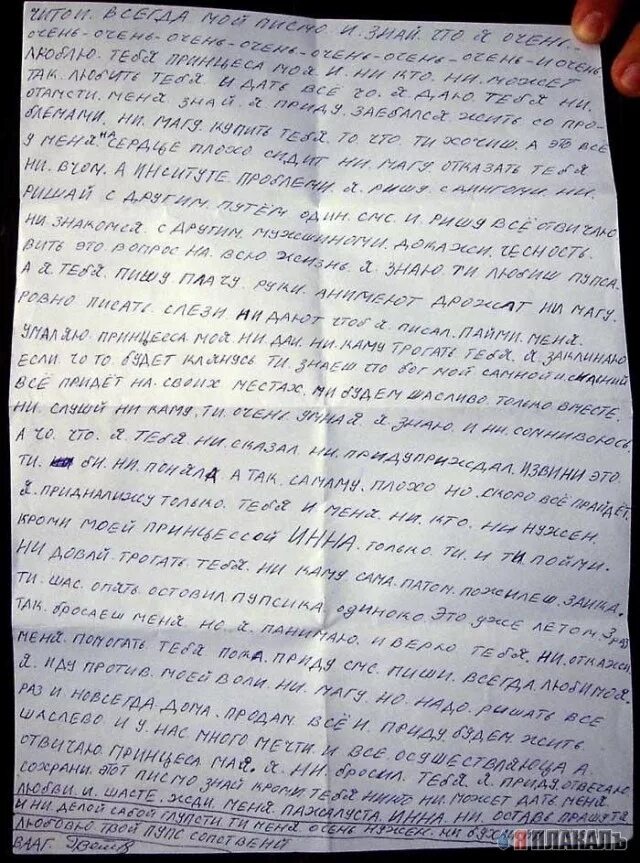 ЧИТОЙ. ВСЕГДА. МОЙ ПИСМО. И. ЗНАЙ. ЧТО Я ОЧЕНЬ-
ОЧЕНЬ-ОЧЕНЬ-ОЧЕНЬ-ОЧЕНЬ-ОЧЕНЬ-ОЧЕНЬ-ОЧЕНЬ-И ОЧЕНЬ
ЛЮБЛЮ. ТЕБЯ ПРИНЦЕСА МОЯ И. НИ КТО. НИ. МОЖЕТ
ТАК. ЛЮБИТЬ ТЕБЯ И ДАТЬ ВСЁ ЧО. Я. ДАЮ. ТЕБЯ НИ.
ОТАМСТИ. МЕНЯ. ЗНАЙ. Я. ПРИДУ. ЗАЕБАЛСЯ ЖИТЬ СО ПРО-
БЛЕМАМИ. НИ. МАГУ. КУПИТЬ ТЕБЯ. ТО. ЧТО. ТИ ХОЧИШ. А ЭТО ВСЁ
У МЕНЯ НА СЕРДЦЕ ПЛОХО СИДИТ НИ. МАГУ. ОТКАЗАТЬ ТЕБЯ
НИ. ВЧОМ. А ИНСИТУТЕ. ПРОБЛЕМИ. Я. РИШУ. С КНИГОМИ. НИ.
РИШАЙ С ДРУГИМ. ПУТЁМ ОДИН. СМС. И. РИШУ ВСЁ ОТВИЧАЮ
НИ. ЗНАКОМСЯ С ДРУГИМ. МУЖШИНОМИ. ДОКАЖИ. ЧЕСНОСТЬ.
ВИТЬ ЭТО ВОПРОС НА. ВСЮ ЖИЗНЬ. Я. ЗНАЮ. ТИ ЛЮБИШ ПУПСА.
А Я ТЕБЯ. ПИШУ ПЛАЧУ. РУКИ. АНИМЕЮТ ДРОЖАТ НИ МАГУ.
РОВНО ПИСАТЬ СЛЕЗИ. НИ ДАЮТ ЧТОБ Я. ПИСАЛ. ПАЙМИ. МЕНЯ.
УМАЛЯЮ. ПРИНЦЕССА МОЯ НИ. ДАИ. НИ. КАМУ ТРОГАТЬ ТЕБЯ. Я. ЗАКЛИНАЮ
ЕСЛИ. ЧО ТО БУДЕТ КЛЯНУСЬ ТИ. ЗНАЕШ ЧТО БОГ МОЙ САМНОЙ И СИЛНИЙ
ВСЁ ПРИДЁТ НА. СВОИХ МЕСТАХ. МИ БУДЕМ ШАСЛИВО ТОЛЬКО ВМЕСТЕ.
НИ. СЛУШЙ НИ КАМУ. ТИ. ОЧЕНЬ УМНАЯ Я. ЗНАЮ. И НИ. СОМНИВОЮСЬ.
А ЧО. ЧТО. Я. ТЕБЯ НИ. СКАЗАЛ НИ. ПРИДУПРИЖДАЛ. ИЗВИНИ ЭТО
ТИ. БИ. НИ. ПОНЯЛА А ТАК. САМАМУ. ПЛОХО НО. СКОРО ВСЁ ПРАЙДЁТ.
Я. ПРИДНАЛИЖУ ТОЛЬКО. ТЕБЯ И МЕНЯ НИ. КТО. НИ НУЖЕН.
КРОМИ МОЕЙ ПРИНЦЕССОЙ ИННА. ТОЛЬКО. ТИ. И ТИ ПОЙМИ.
НИ ДОВАЙ. ТРОГАТЬ ТЕБЯ. НИ КАМУ САМА. ПАТОМ. ПОЖИЛЕШ. ЗАИКА.
ТИ. ШАС. ОПЯТЬ. ОСТОВИЛ ПУПСИКА. ОДИНОКО. ЭТО УЖЕ ЛЕТОМ 3 раз
ТАК. БРОСАЕШ МЕНЯ. НО. Я. ПАНИМАЮ. И ВЕРЮ ТЕБЯ. НИ. ОТКАЖИ
МЕНЯ. ПОМОГАТЬ ТЕБЯ ПОКА. ПРИДУ СМС. ПИШИ. ВСЕГДА. ЛЮБИМОЯ.
Я. ИДУ ПРОТИВ. МОЕЙ ВОЛИ. НИ. МАГУ. НО. НАДО. РИШАТЬ ВСЕ
РАЗ И. НОВСЕГДА. ДОМА. ПРОДАМ. ВСЁ И. ПРИДУ. БУДЕМ ЖИТЬ.
ШАСЛЕВО И У НАС МНОГО МЕЧТИ И ВСЕ ОСУЩЕСТВЛЯЮЦА А
ОТВИЧАЮ. ПРИНЦЕСА МАЯ. Я. НИ. БРОСИЛ. ТЕБЯ. Я. ПРИДУ. ОТВЕЧАЮ
СОХРАНИ. ЭТОТ ПИСМО ЗНАЙ КРОМИ. ТЕБЯ НИКТО НИ. МОЖЕТ ДАТЬ МЕНЯ
ЛЮБВИ. И. ШАСТЕ. ЖДИ. МЕНЯ. ПАЖАЛУСТА. ИННА. НИ. ОСТАВЬ ПРАШУ ТЯ
И НИ. ДЕЛОЙ САБОЙ ГЛУПОСТИ ТИ МЕНЯ ОЧЕНЬ НУЖЕН.
ЛЮБОВЮ ТВОЙ ПУПС СОПСТВЕНИ
ВААГ.
ЯПЛАКАЛЪ